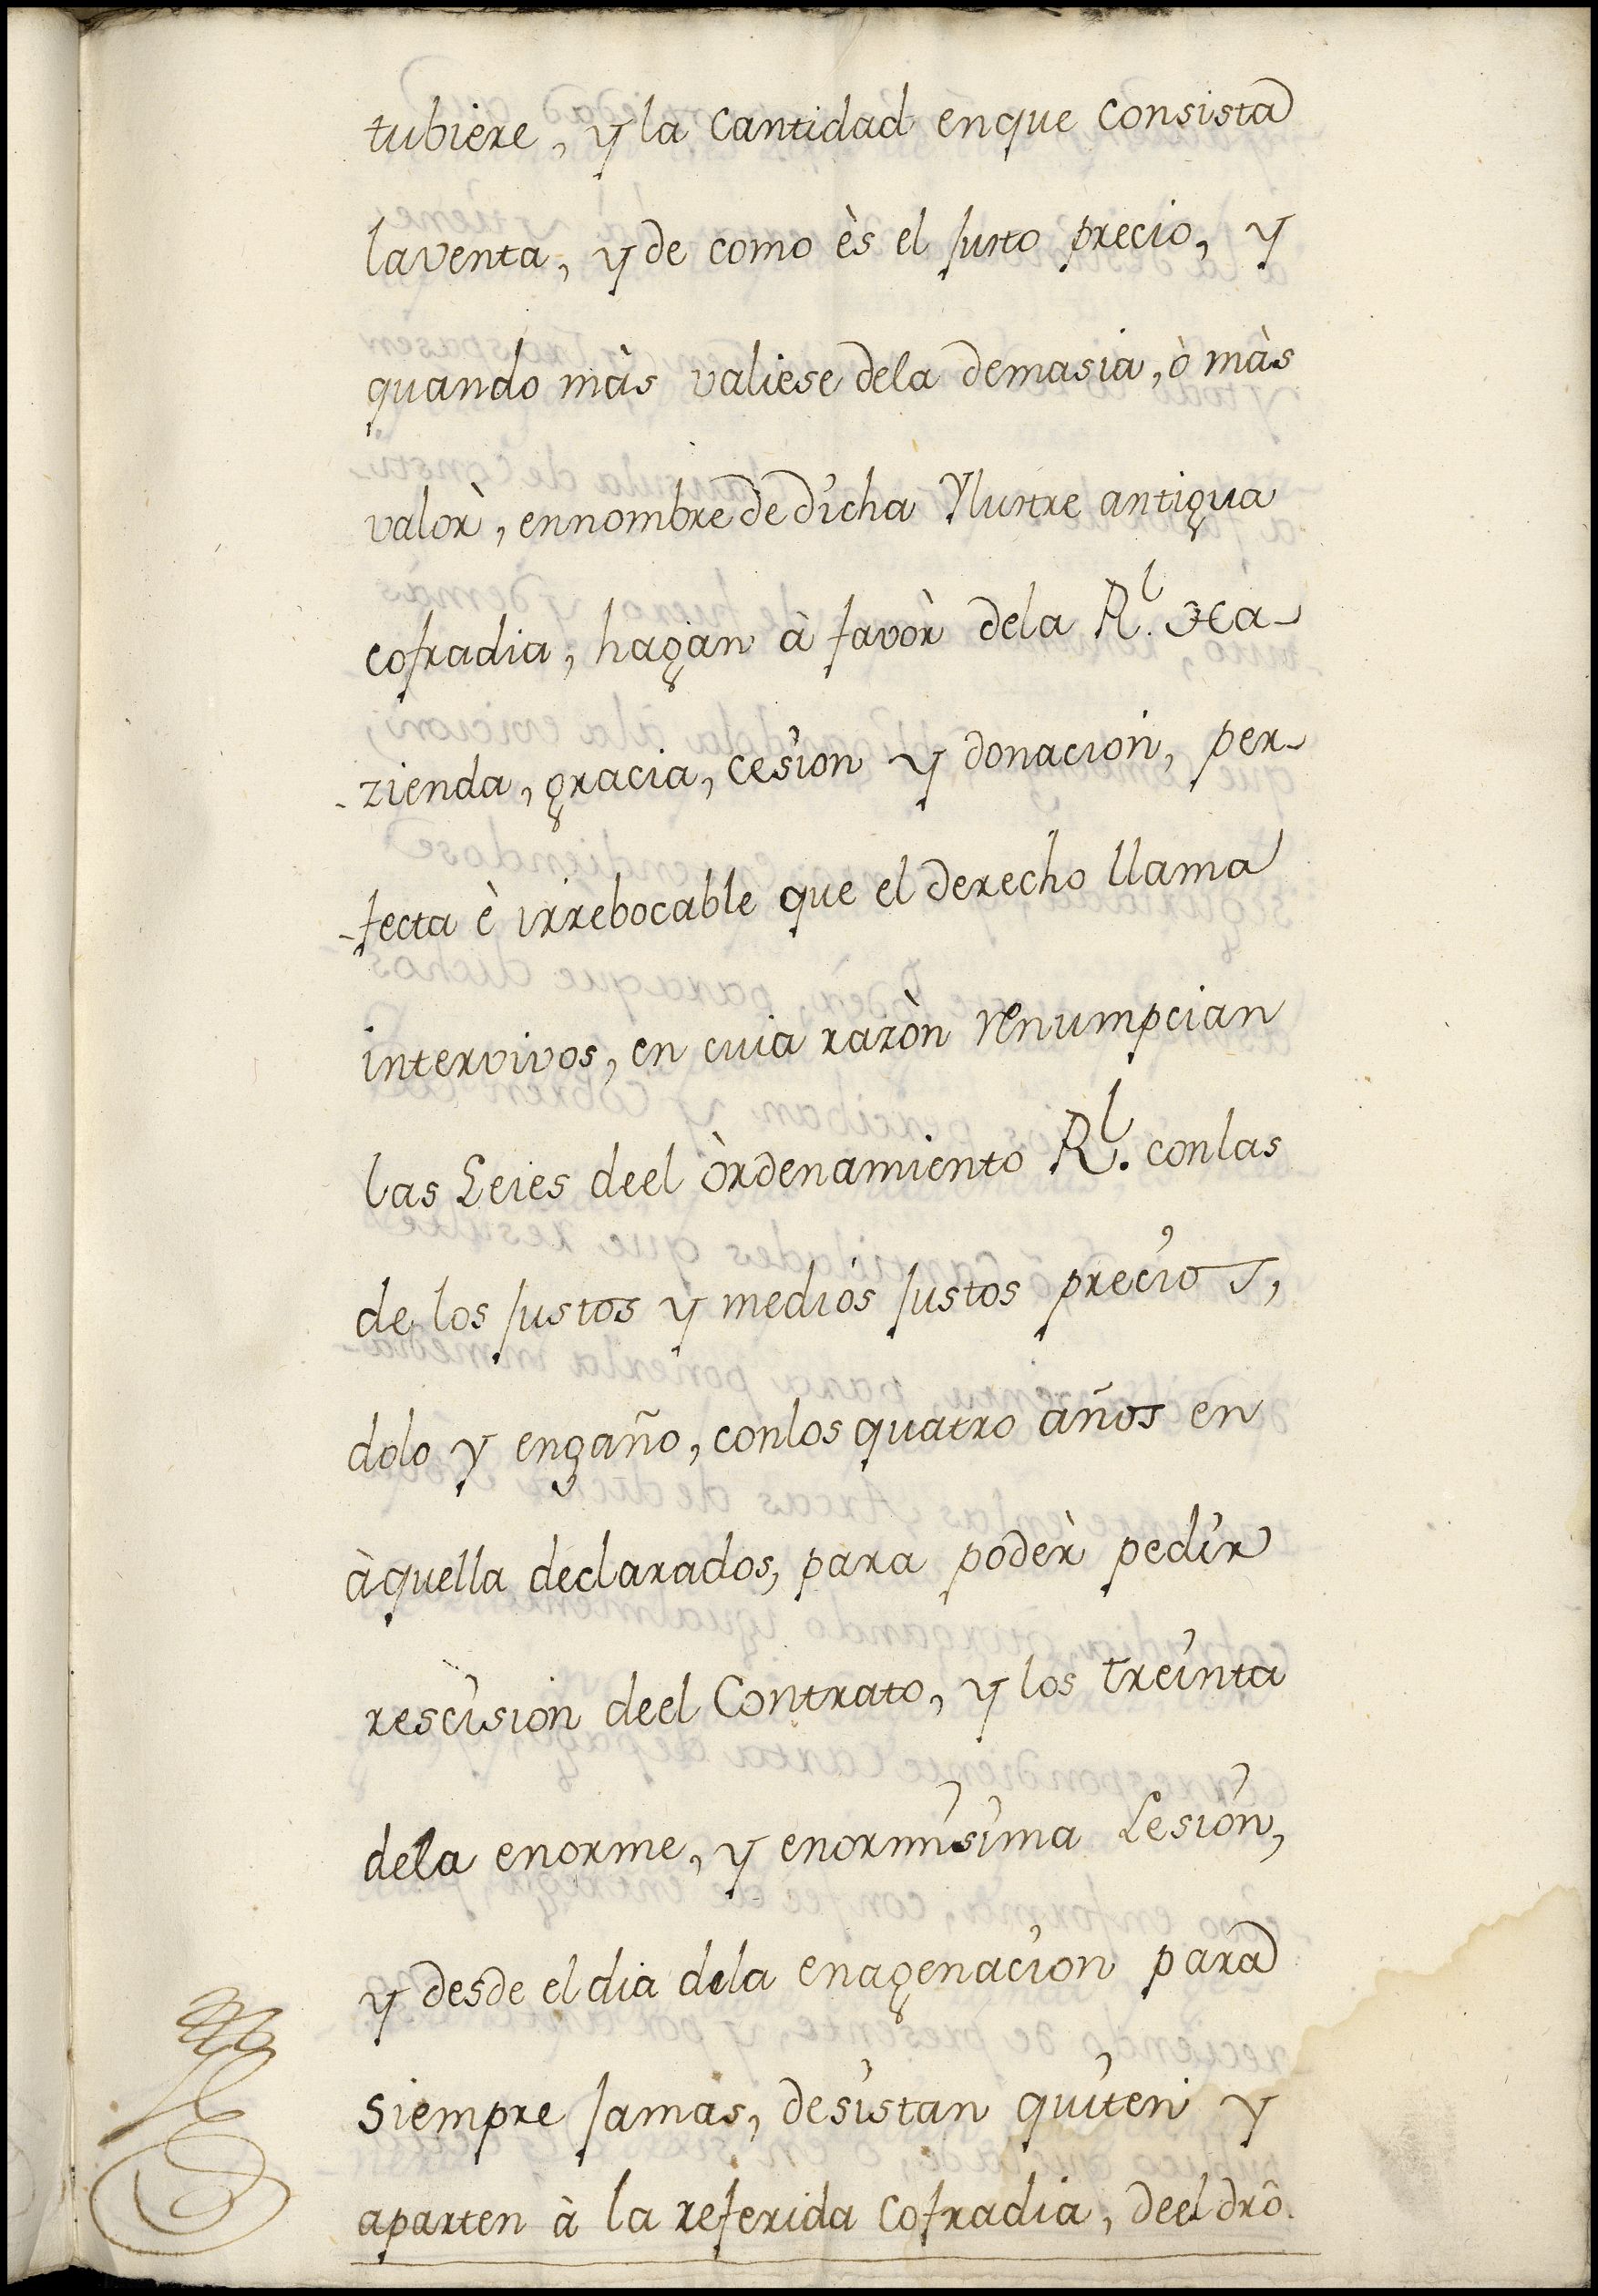 tubiere, y la Cantidad enque Consista
laventa, y de como ès el justo precio, y
quando màs valiese dela demasia, ò màs
valòr, ennombre de dicha Ylustre antigua
cofradia, hagan à favòr dela R.l Ha-
-zienda, gracia, cesion y donacion, per-
-fecta è irrebocable que el derecho llama
intervivos, en cuia razòn renumpcian
las Leies deel òrdenamiento R.l conlas
de los justos y medios justos precios,
dolo y engaño, conlos quatro años en
àquella declarados, para podèr pedir
rescision deel Contrato, y los treinta
dela enorme, y enormisima Lesion,
y desde el dia dela enagenacion para
siempre jamas, desistan quiten y
aparten à la referida Cofradia, deel drô.